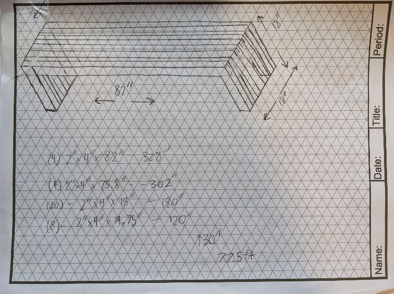 18"
18"
82"
(4) 2"x4"x82" - 328"
(4) 2"x4"x 75.8" - 302"
(10) - 2"x4"x18" - 180"
(8) - 2"x4"x 14.75" - 120"
930"
77.5 ft
Name:
Date:
Title:
Period: